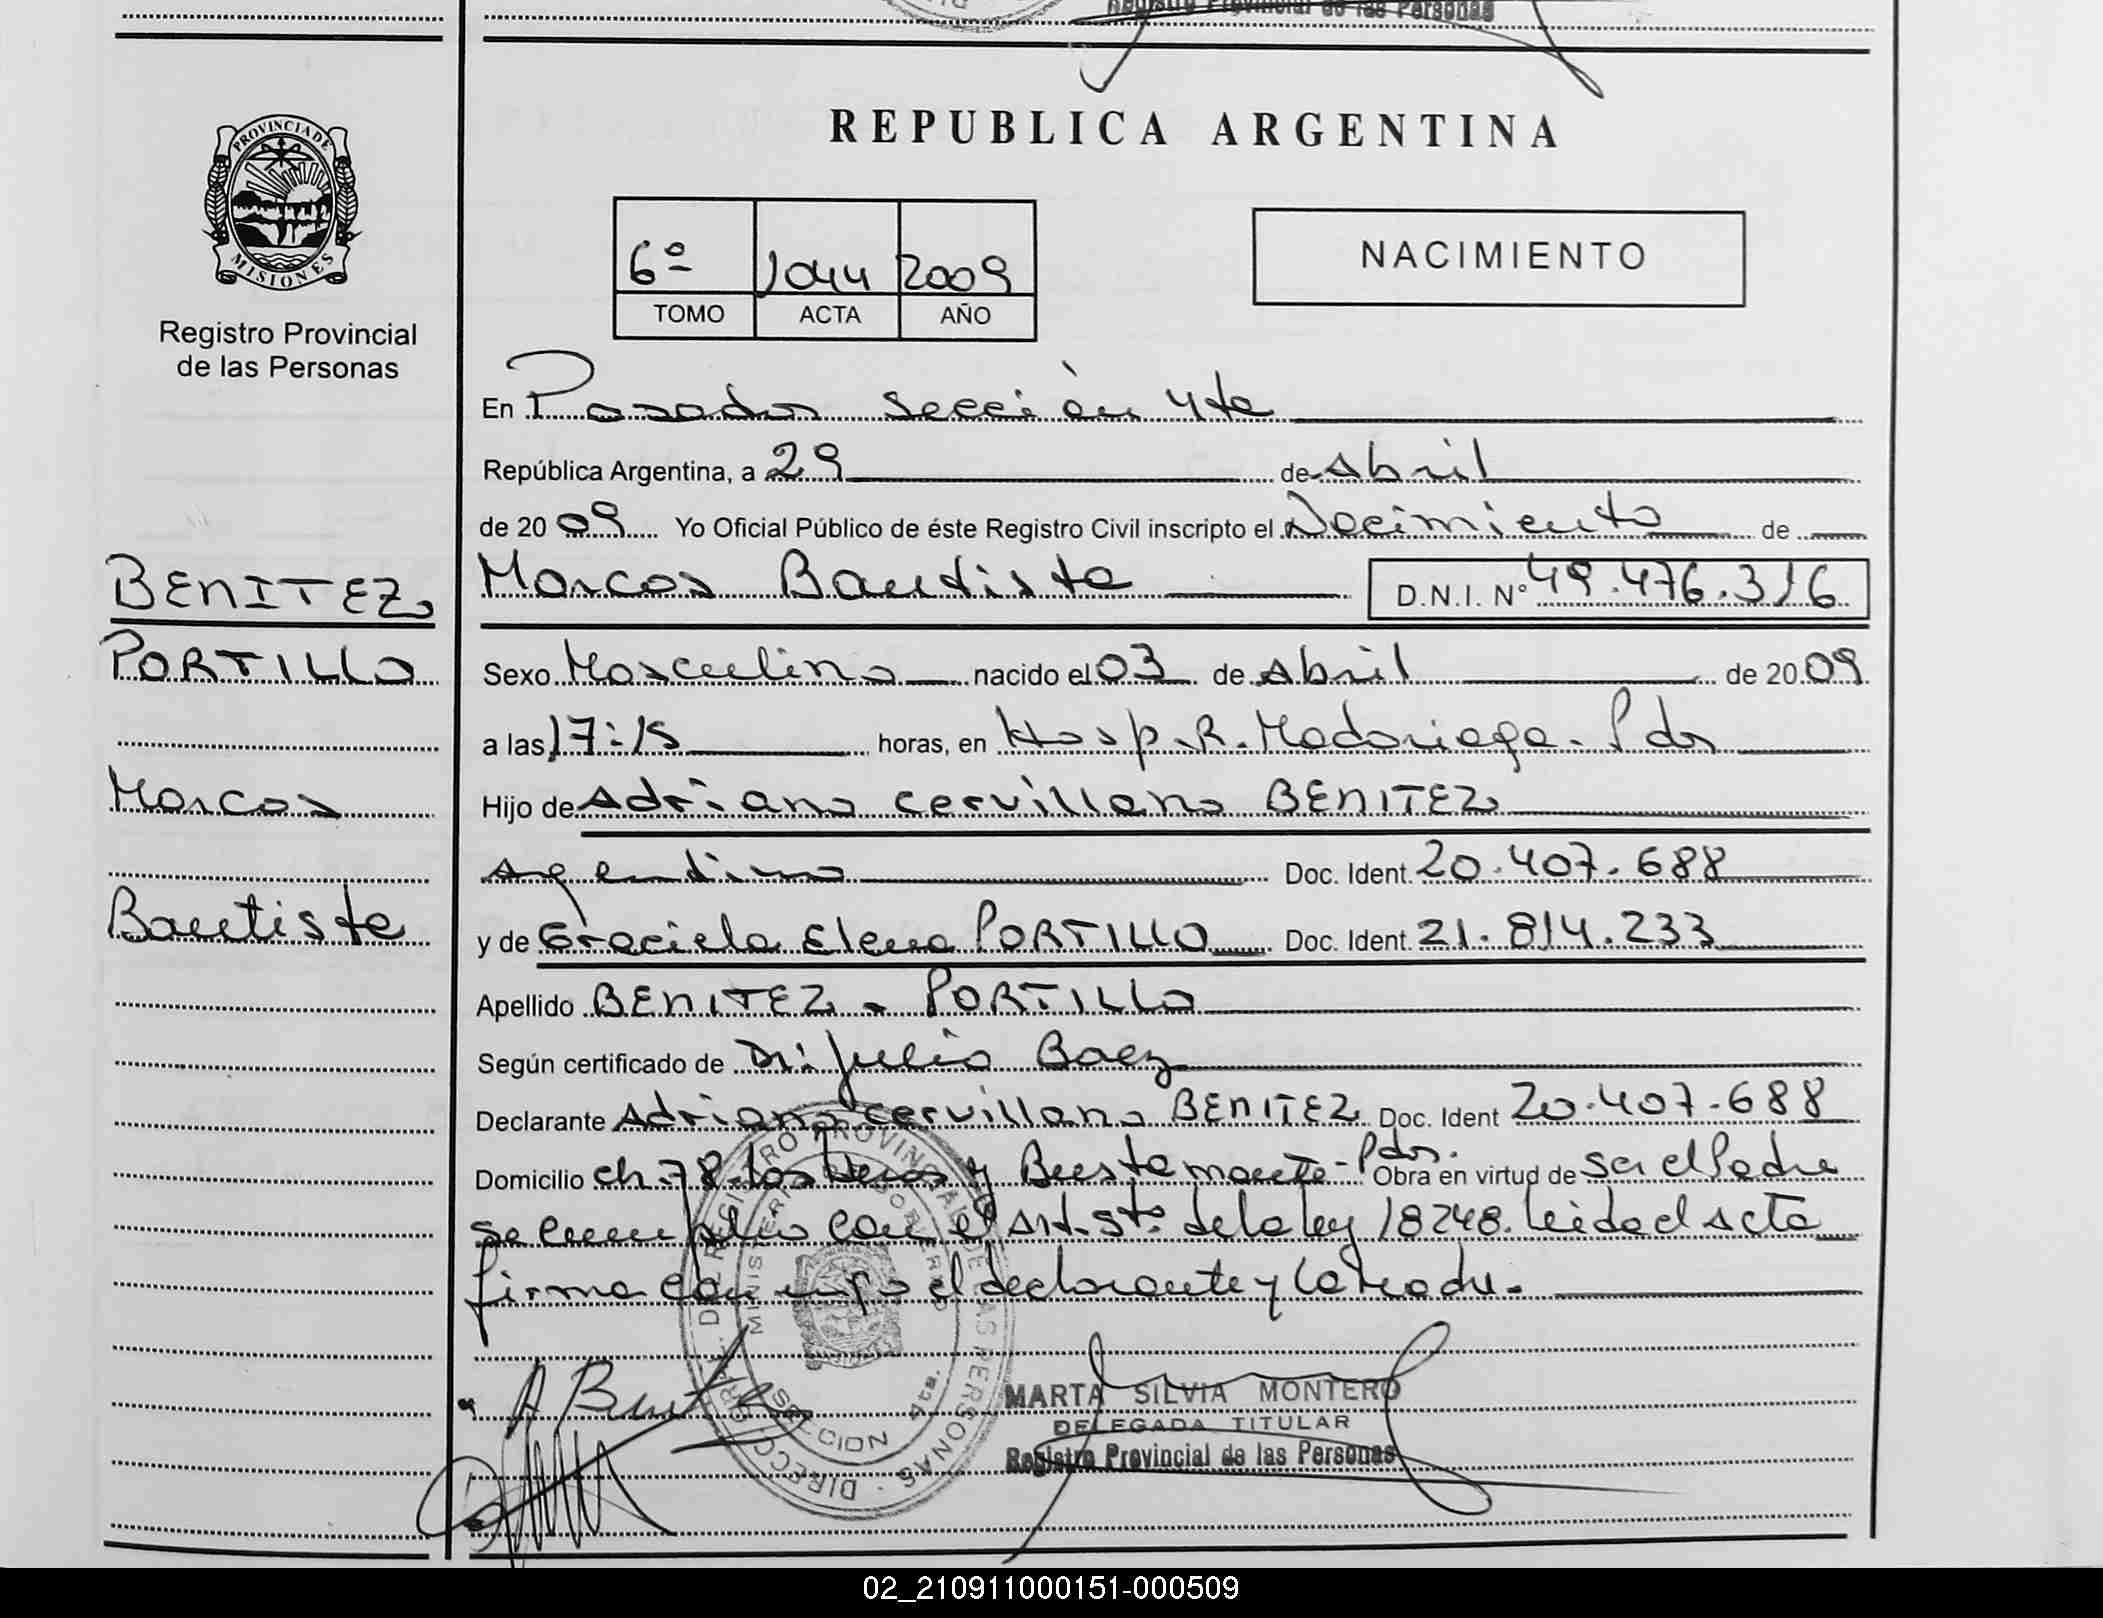 Registro Provincial de las Personas
REPUBLICA ARGENTINA
PROVINCIA DE
MISIONES
Registro Provincial
de las Personas
6º 1044 2009
TOMO ACTA AÑO
NACIMIENTO
En Posadas Sección 4ta
República Argentina, a 29 de Abril
de 2009 Yo Oficial Público de éste Registro Civil inscripto el Nacimiento de
Marcos Bautista D.N.I. Nº 49.476.316
BENITEZ
PORTILLO
Marcos
Bautista
Sexo Masculino nacido el 03 de Abril de 2009
a las 17:15 horas, en Hosp. R. Madariaga - Pdas
Hijo de Adriano Cervillano BENITEZ
Argentino Doc. Ident. 20.407.688
y de Graciela Elena PORTILLO Doc. Ident. 21.814.233
Apellido BENITEZ - PORTILLO
Según certificado de Dr: Julio Baez
Declarante Adriano Cervillano BENITEZ Doc. Ident 20.407.688
Domicilio Ch. 78. Las Heras y Bustamante - Pdas. Obra en virtud de ser el Padre
se cumplio con el Art. 5to de la ley 18248. Leida el Acta
firma conmigo el declarante y la Madre.
DIRECC. GRAL. DEL REGISTRO PROVINCIAL DE LAS PERSONAS
MINISTERIO DE GOBIERNO
SECCION 4ta.
MARTA SILVIA MONTERO
DELEGADA TITULAR
Registro Provincial de las Personas
02_210911000151-000509